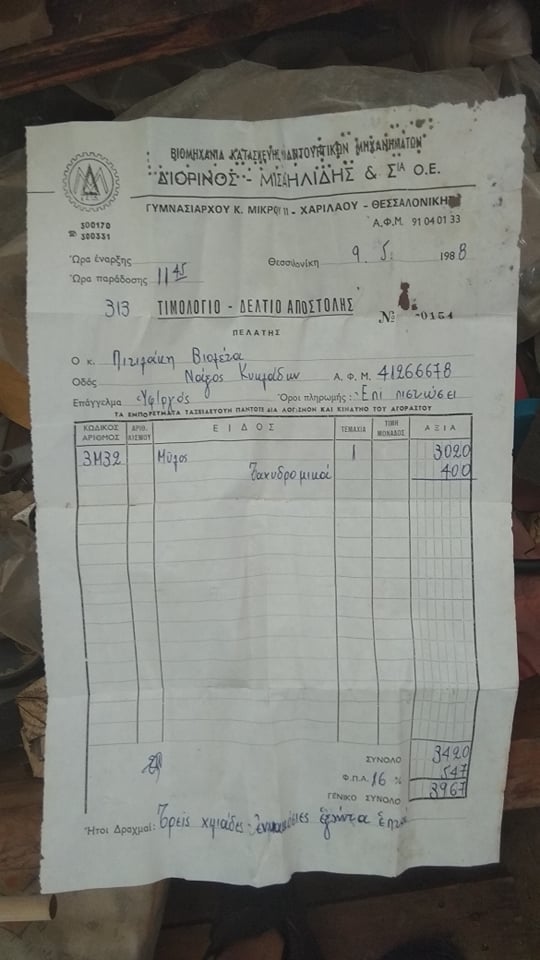 ΒΙΟΜΗΧΑΝΙΑ ΚΑΤΑΣΚΕΥΗΣ ΥΦΑΝΤΟΥΡΓΙΚΩΝ ΜΗΧΑΝΗΜΑΤΩΝ
ΔΙΟΡΙΝΟΣ - ΜΙΣΑΗΛΙΔΗΣ & ΣΙΑ Ο.Ε.
ΓΥΜΝΑΣΙΑΡΧΟΥ Κ. ΜΙΚΡΟΥ 11 - ΧΑΡΙΛΑΟΥ - ΘΕΣΣΑΛΟΝΙΚΗ
300170
☎ 300331
Α.Φ.Μ. 91 04 01 33
Ὥρα έναρξης
Θεσσ/νίκη 9. 5. 1988
Ὥρα παράδοσης 11 45
313 ΤΙΜΟΛΟΓΙΟ - ΔΕΛΤΙΟ ΑΠΟΣΤΟΛΗΣ № 0154
ΠΕΛΑΤΗΣ
Ο κ.
Οδός Νάξος Κυκλάδων Α.Φ.Μ. 41266678
Επάγγελμα Όροι πληρωμής: Επί πιστώσει
ΤΑ ΕΜΠΟΡΕΥΜΑΤΑ ΤΑΞΕΙΔΕΥΟΥΝ ΠΑΝΤΟΤΕ ΔΙΑ ΛΟΓΙΣΜΟΝ ΚΑΙ ΚΙΝΔΥΝΟ ΤΟΥ ΑΓΟΡΑΣΤΟΥ
ΚΩΔΙΚΟΣ ΑΡΙΘΜΟΣ ΑΡΙΘ. ΕΙΔΟΣ ΤΕΜΑΧΙΑ ΤΙΜΗ ΜΟΝΑΔΟΣ ΑΞΙΑ
3Μ32 1 3020
Ταχυδρομικά 400
ΣΥΝΟΛΟ 3420
Φ.Π.Α. 16 % 547
ΓΕΝΙΚΟ ΣΥΝΟΛΟ 3967
Ἤτοι Δραχμαί: Τρείς χιλιάδες εννιακόσιες εξήντα επτά